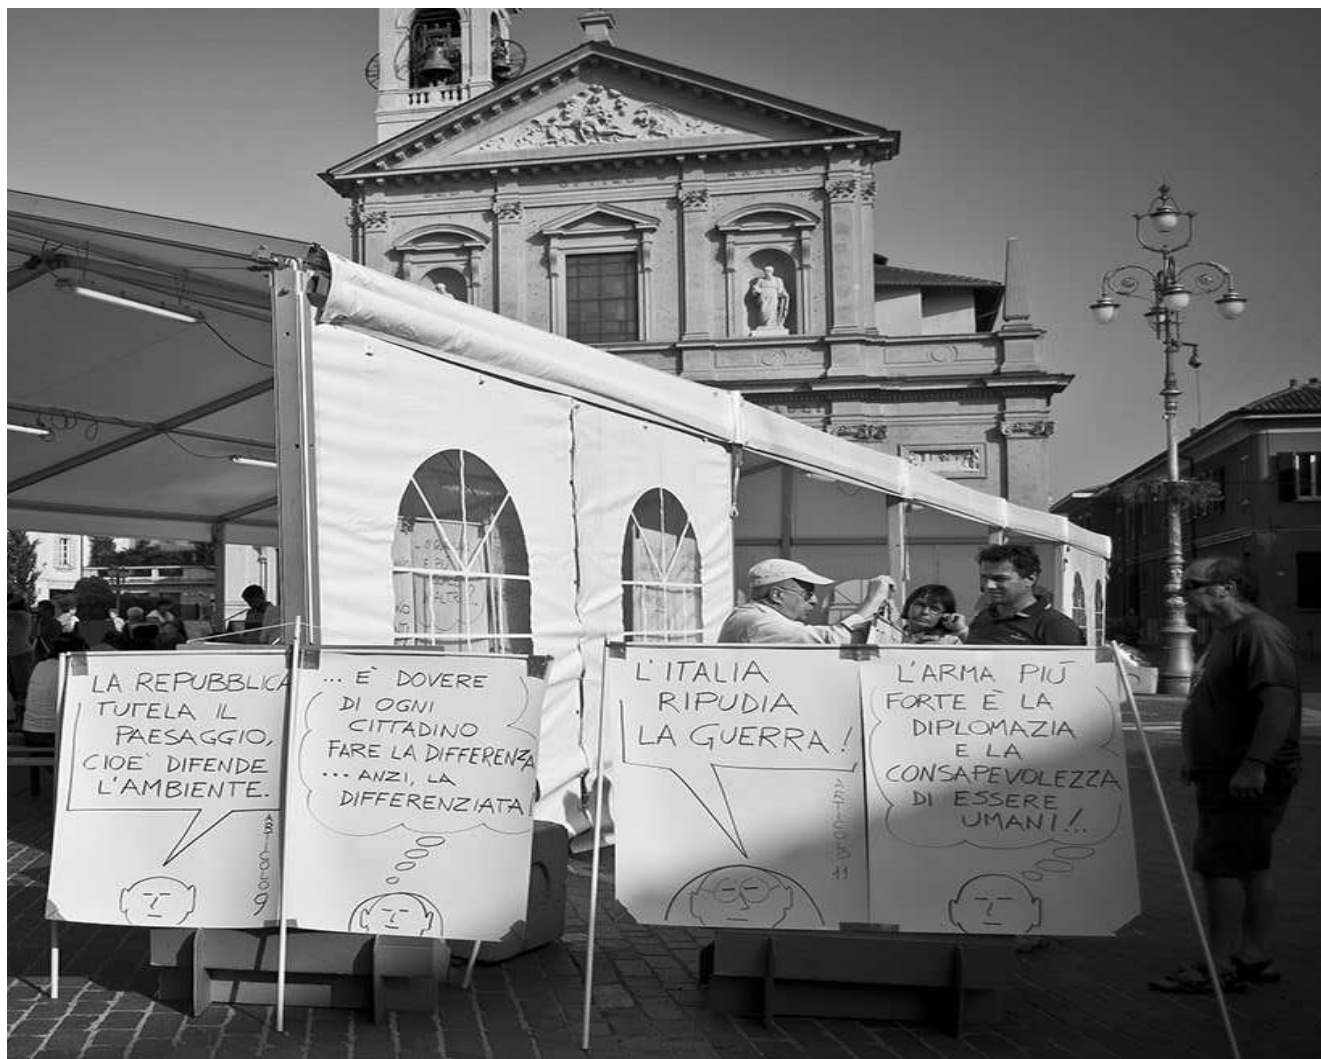 LA REPUBBLICA
TUTELA IL
PAESAGGIO,
CIOE' DIFENDE
L'AMBIENTE.
ARTICOLO 9
... È DOVERE
DI OGNI
CITTADINO
FARE LA DIFFERENZA
... ANZI, LA
DIFFERENZIATA!
L'ITALIA
RIPUDIA
LA GUERRA!
ARTICOLO 11
L'ARMA PIÚ
FORTE È LA
DIPLOMAZIA
E LA
CONSAPEVOLEZZA
DI ESSERE
UMANI!..